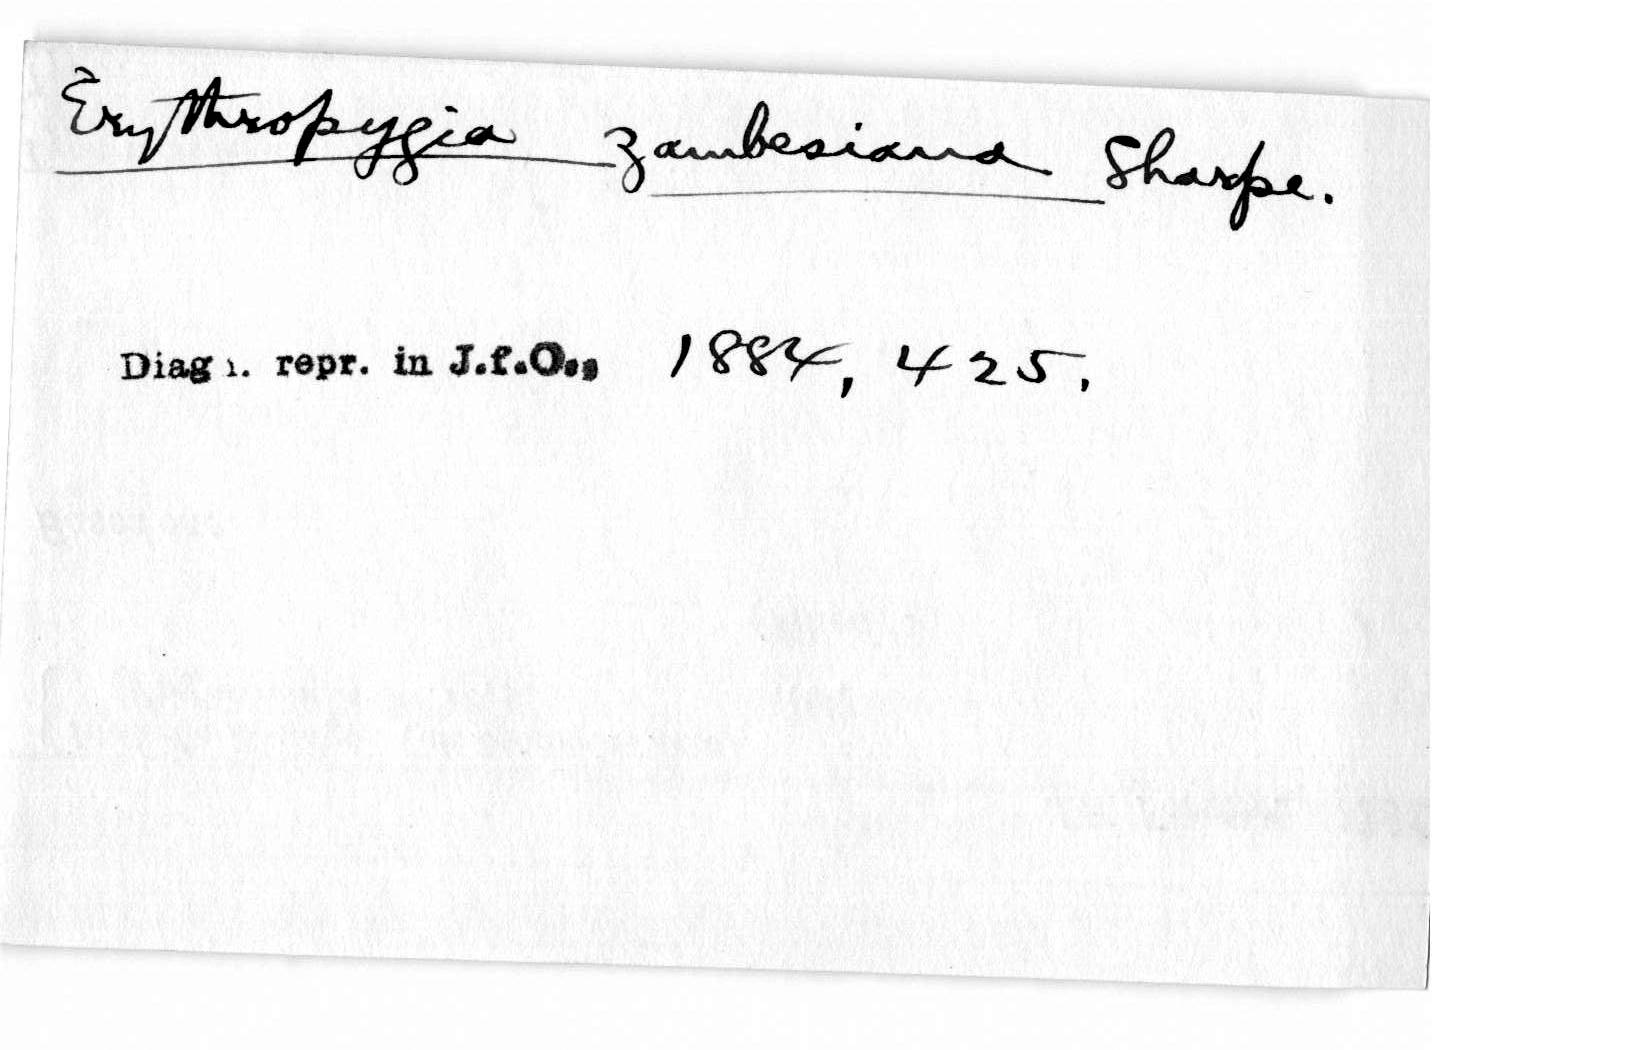 Erythropygia zambesiana Sharpe.
Diagn. repr. in J.f.O., 1884, 425.